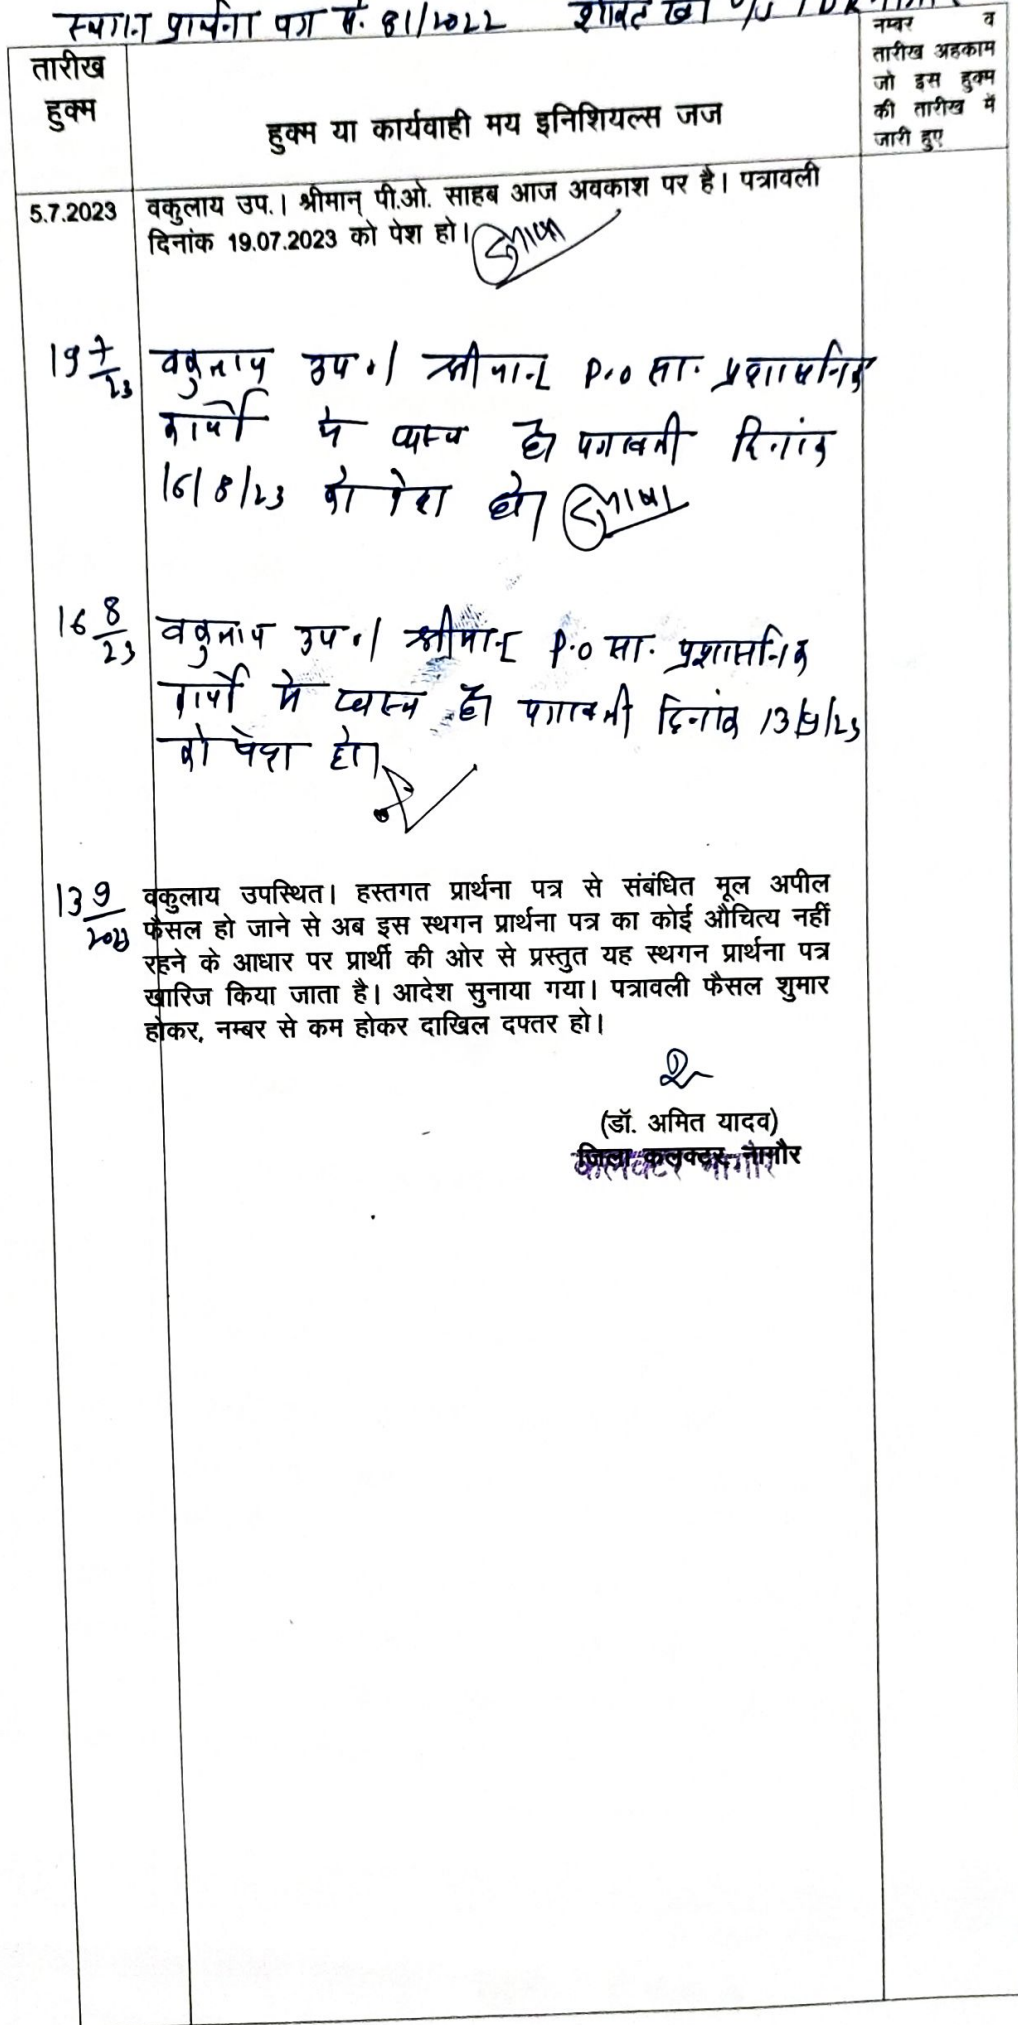 स्थगन प्रार्थना पत्र सं. 81/2022
नम्बर व
तारीख अहकाम
जो इस हुक्म
की तारीख में
जारी हुए
तारीख
हुक्म
हुक्म या कार्यवाही मय इनिशियल्स जज
5.7.2023 वकुलाय उप.। श्रीमान् पी.ओ. साहब आज अवकाश पर है। पत्रावली
दिनांक 19.07.2023 को पेश हो।
19 7/23 वकुलाय उप.। श्रीमान् P.O सा. प्रशासनिक
कार्यो मे व्यस्त है। पत्रावली दिनांक
16/8/23 को पेश हो।
16 8/23 वकुलाय उप.। श्रीमान् P.O सा. प्रशासनिक
कार्यो मे व्यस्त है। पत्रावली दिनांक 13/9/23
को पेश हो।
13 9/2023 वकुलाय उपस्थित। हस्तगत प्रार्थना पत्र से संबंधित मूल अपील
फैसल हो जाने से अब इस स्थगन प्रार्थना पत्र का कोई औचित्य नहीं
रहने के आधार पर प्रार्थी की ओर से प्रस्तुत यह स्थगन प्रार्थना पत्र
खारिज किया जाता है। आदेश सुनाया गया। पत्रावली फैसल शुमार
होकर, नम्बर से कम होकर दाखिल दफ्तर हो।
(डॉ. अमित यादव)
जिला कलक्टर, नागौर
कलक्टर नागौर